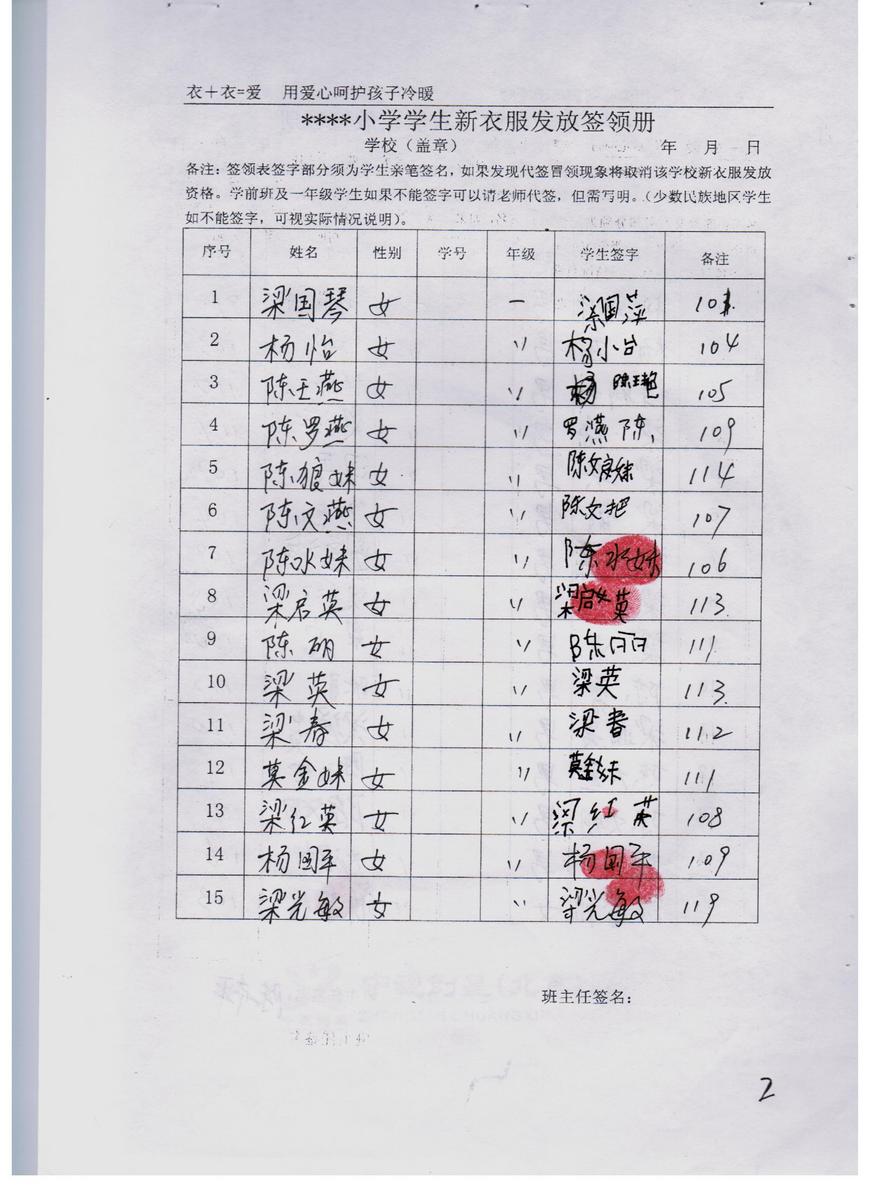 衣＋衣=爱 用爱心呵护孩子冷暖
****小学学生新衣服发放签领册
学校（盖章） 年 月 日
备注：签领表签字部分须为学生亲笔签名，如果发现代签冒领现象将取消该学校新衣服发放
资格。学前班及一年级学生如果不能签字可以请老师代签，但需写明。（少数民族地区学生
如不能签字，可视实际情况说明）。
序号 姓名 性别 学号 年级 学生签字 备注
1 梁国琴 女 一 梁国萍
2 杨怡 女 〃 杨小台 104
3 陈王燕 女 〃 杨 陈王艳 105
4 陈罗燕 女 〃 罗燕 陈 109
5 陈狼妹 女 〃 114
6 陈文燕 女 〃 陈文把 107
7 陈水妹 女 〃 陈水妹 106
8 梁启英 女 〃 113
9 陈 女 〃 陈丽 111
10 梁英 女 〃 梁英 113
11 梁春 女 〃 梁春 112
12 莫金妹 女 〃 莫金妹 111
13 梁红英 女 〃 梁红英 108
14 杨国平 女 〃 杨国平 109
15 梁光敏 女 〃 梁光敏 119
班主任签名：
2